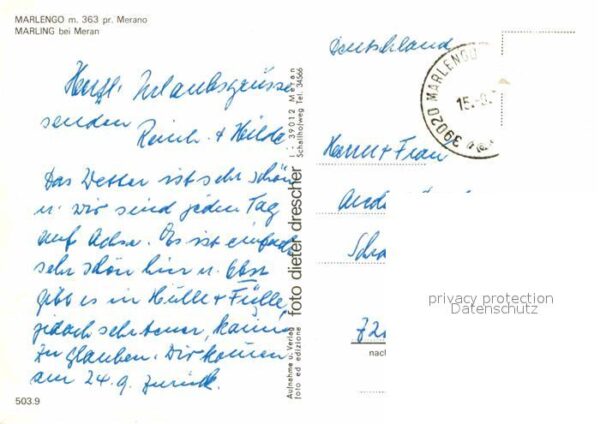 MARLENGO m. 363 pr. Merano
MARLING bei Meran
Herzl. Urlaubsgrüsse
senden
Reinh. + Hilde
Das Wetter ist sehr schön
u. wir sind jeden Tag
auf Achse. Es ist einfach
sehr schön hier u. Obst
gibt es in Hülle + Fülle,
jedoch sehr teuer, kaum
zu glauben. Wir kommen
am 24.9. zurück.
503.9
Aufnahme u. Verlag
foto ed edizione
foto dieter drescher
I - 39012 Meran
Schallhofweg Tel. 34566
Deutschland
39020 MARLENGO
15.
Herrn + Frau
nach
privacy protection
Datenschutz